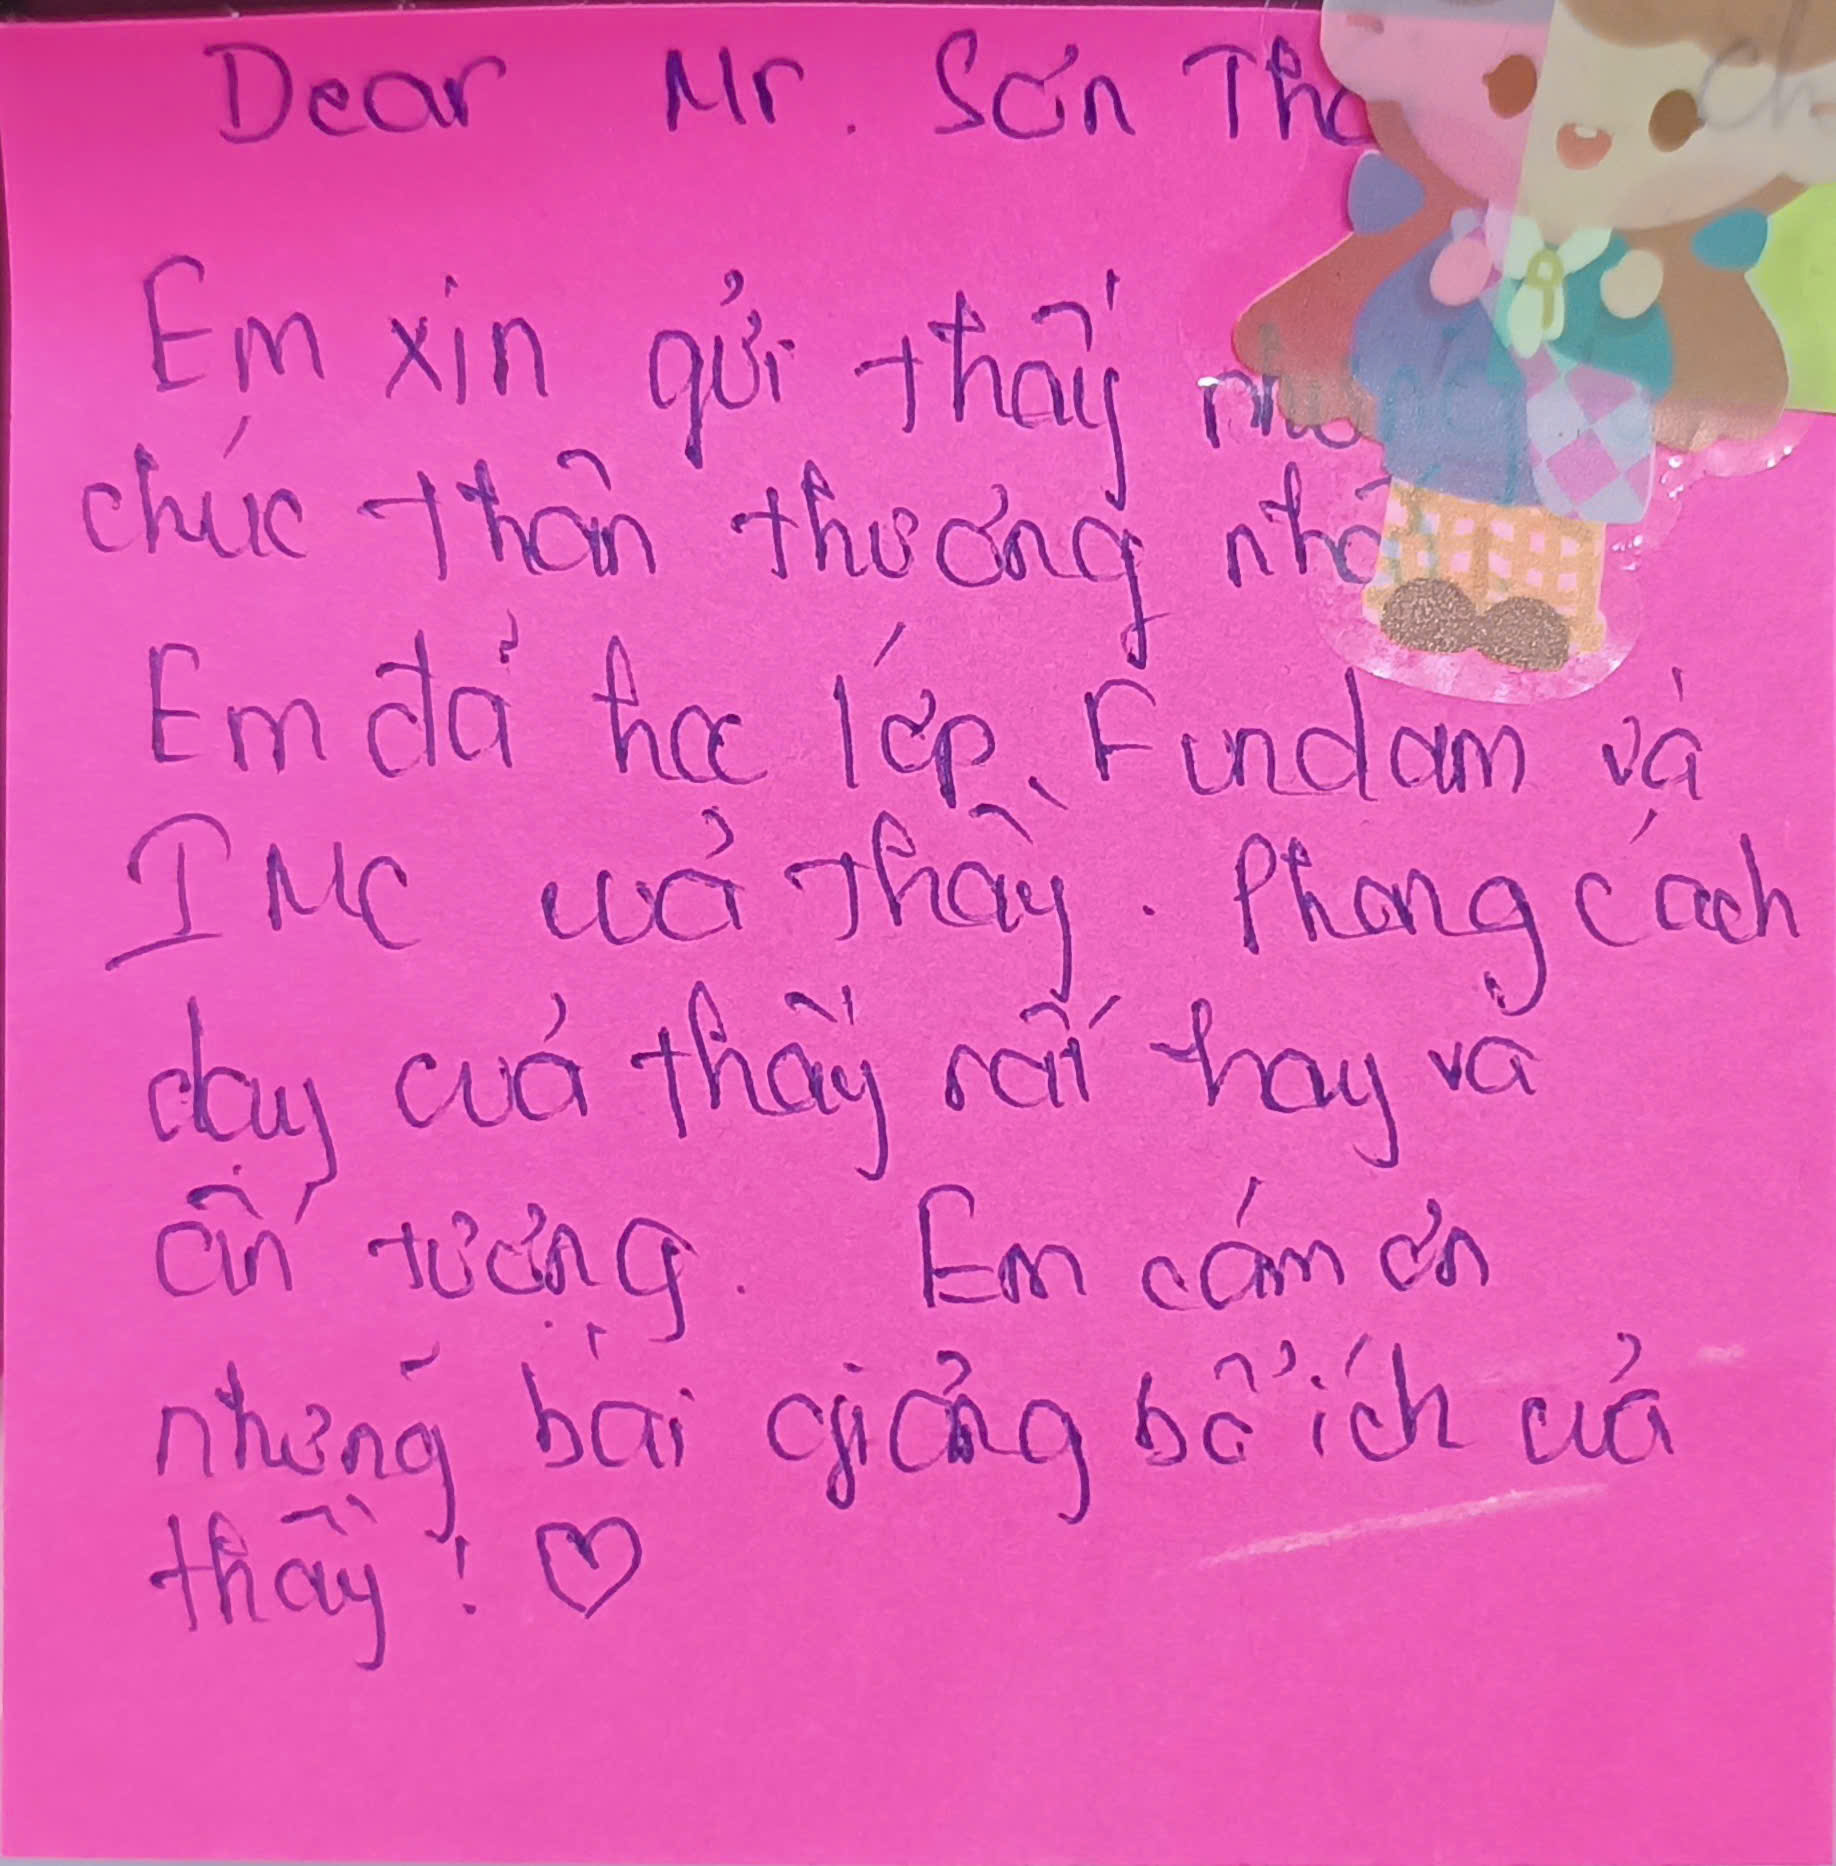 Dear Mr. Sơn
Em xin gửi thầy
chúc thân thương
Em đã học lớp Fundam và
IMC của thầy. Phong cách
dạy của thầy rất hay và
ấn tượng. Em cám ơn
những bài giảng bổ ích của
thầy! ♡